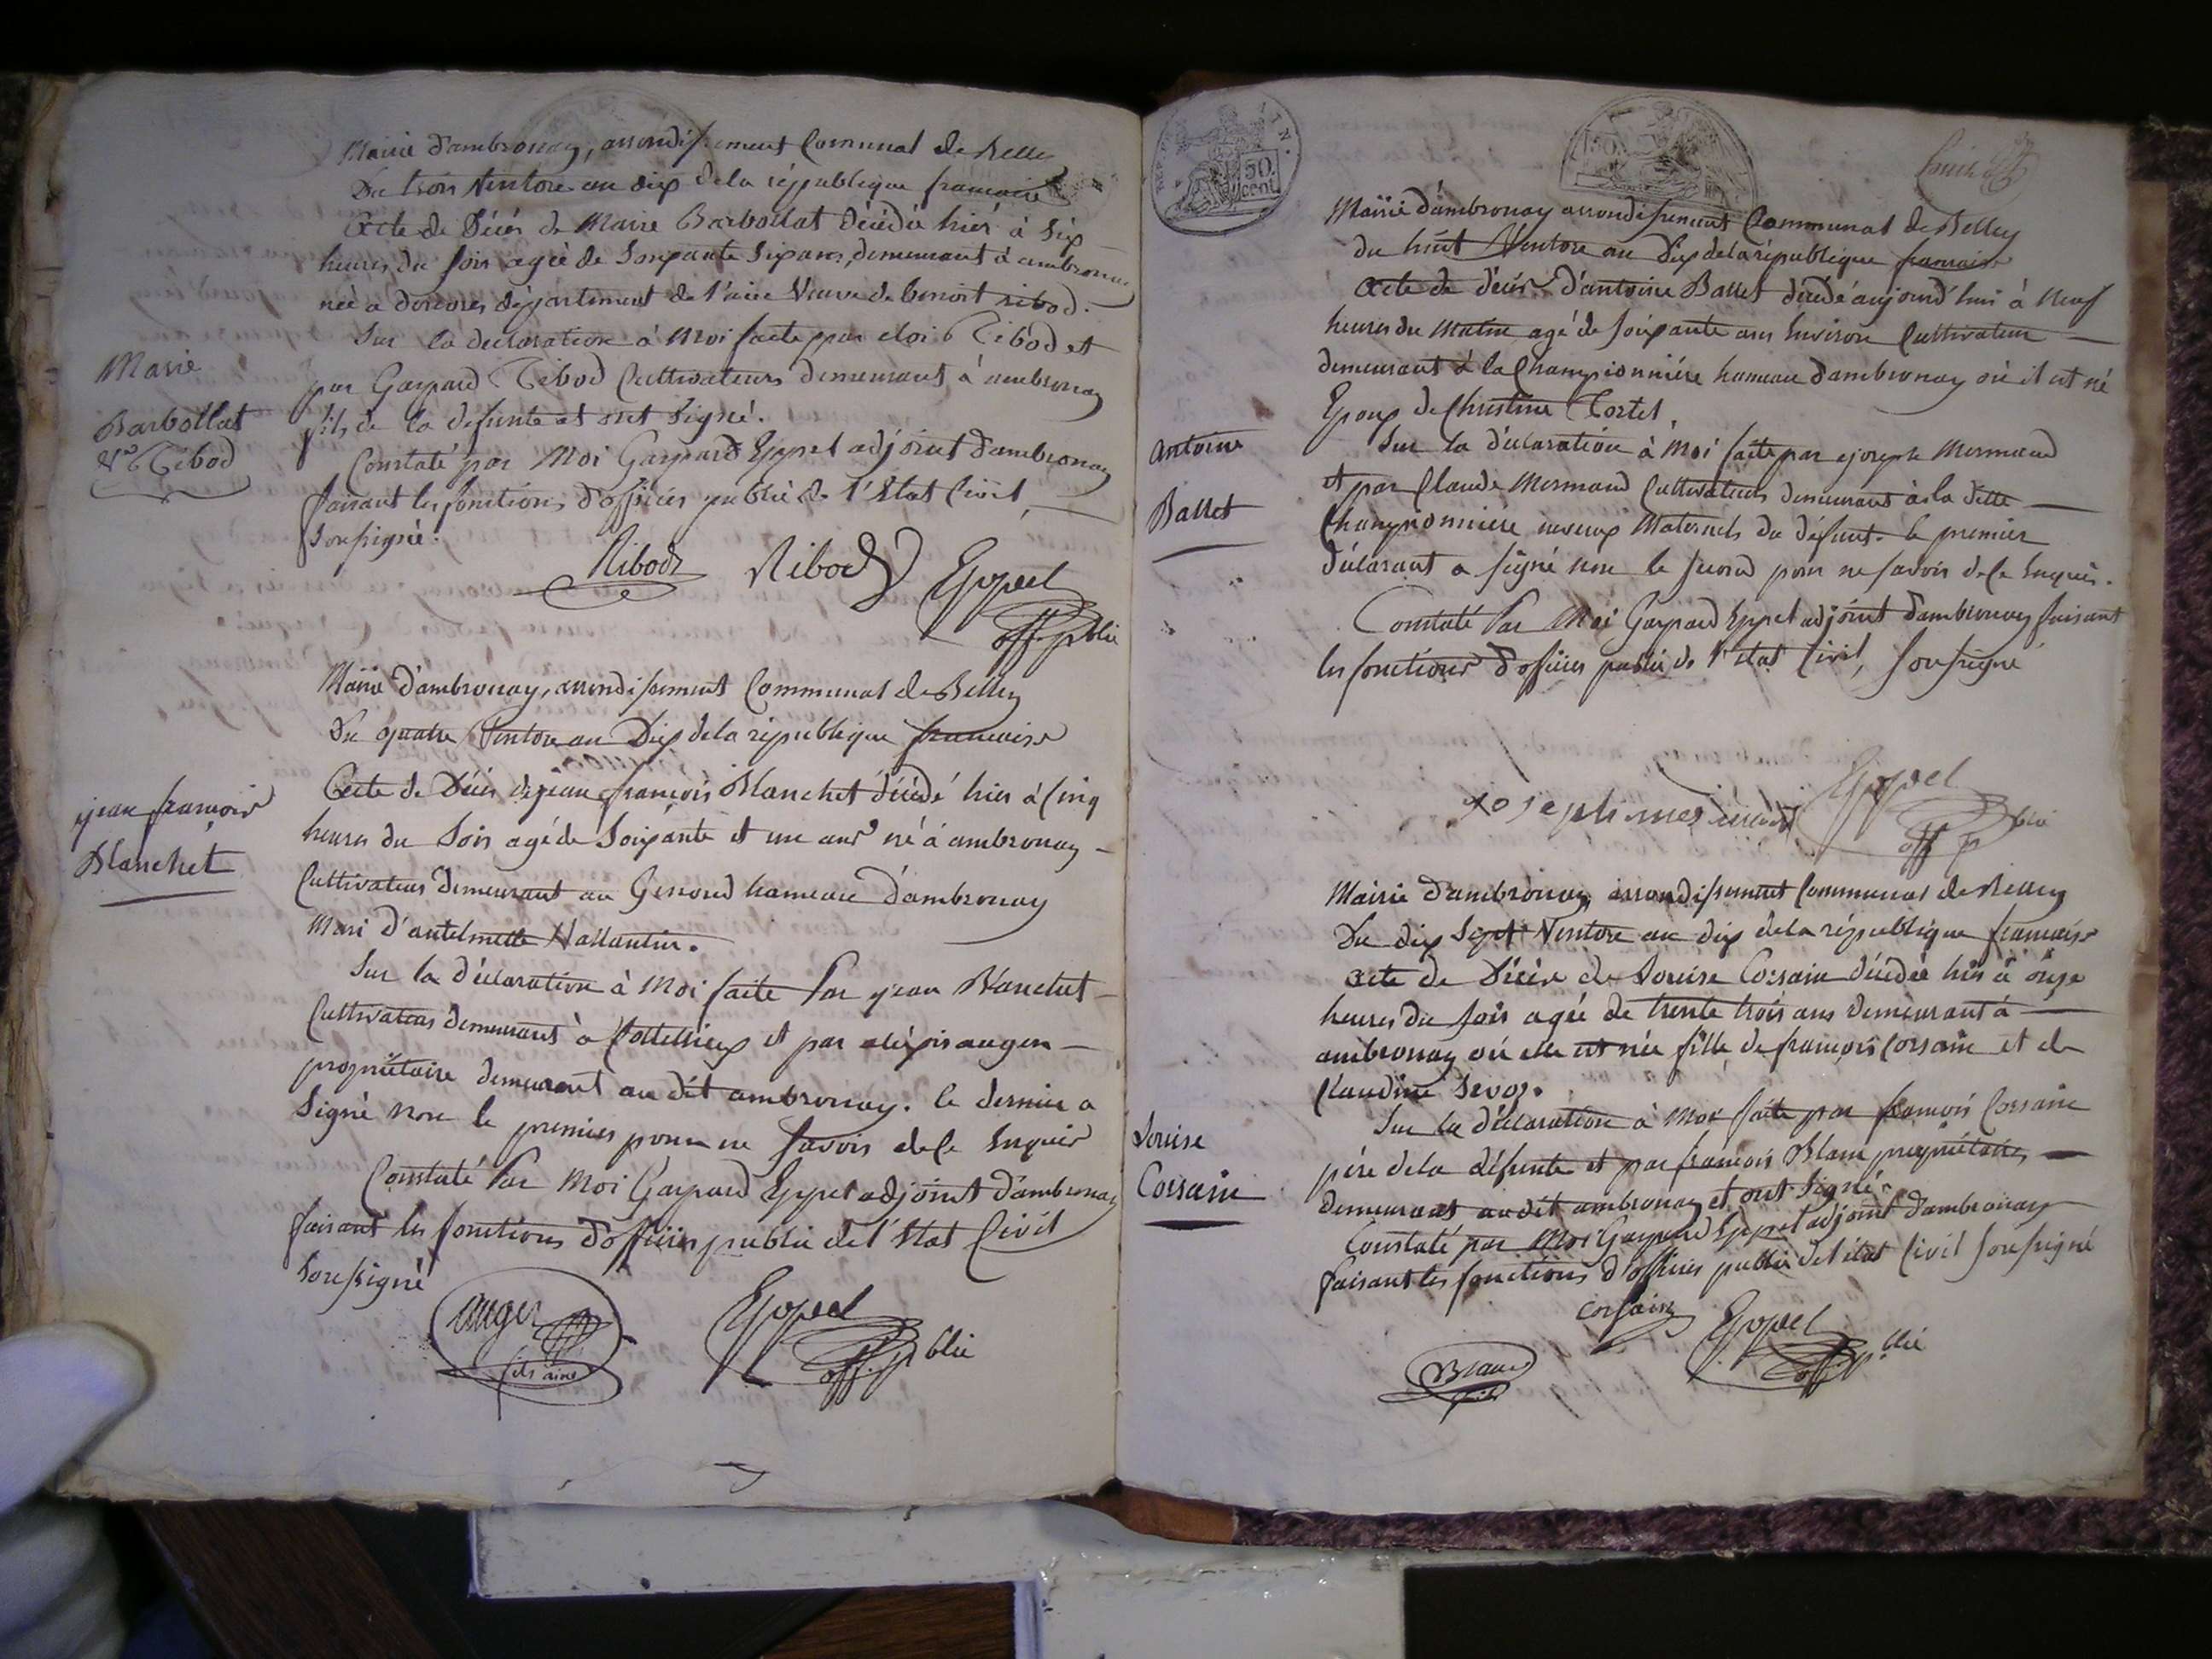 Mairie d'ambronay, arrondissement Communal de Belley
Du trois Ventose an dix de la république francaise
Acte de Décés de Marie Barbollat décédée hier à Six
heures du soir agée de Soixante Six ans, demeurant à ambronay
née a douvres département de l'ain Veuve de benoit ribod.
Sur la declaration à Moi faite par eloi Ribod et
par Gaspard Ribod Cultivateurs demeurant à ambronay
fils de la defunte et ont signé.
Constaté par Moi Gaspard Eppel adjoint d'ambronay
faisant les fonctions d'officier public de l'Etat Civil,
Soussigné.
Marie
Barbollat
Ve Ribod
Ribod Ribod Eppel
off. p blic
Mairie d'ambronay, arrondissement Communal de Belley
Du quatre Ventose an Dix de la république francaise
Acte de Décés de jean françois Blanchet décédé hier à Cinq
heures du Soir agé de Soixante et un ans né à ambronay
Cultivateur demeurant au Genoud hameau d'ambronay
Mari d'antelmette Vallantin.
jean francois
Blanchet
Sur la déclaration à Moi faite Par jean Blanchet
Cultivateur demeurant à Cottellieux et par alexis auger
propriétaire demeurant au dit ambronay. le dernier a
Signé non le premier pour ne savoir de ce Enquis
Constaté Par Moi Gaspard Eppel adjoint d'ambronay
faisant les fonctions d'officier public de l'Etat Civil
Soussigné
auger
fils ainé
Eppel
off. p blic
50
cent
50
Mairie d'ambronay arrondissement Communal de Belley
du huit Ventose an Dix de la république francaise
Acte de décés d'antoine Ballet décédé aujourd'hui à Neuf
heures du Matin agé de soixante ans Environ Cultivateur
demeurant à la Championnière hameau d'ambronay où il est né
Epoux de Christine Tortel.
Antoine
Ballet
Sur la déclaration à Moi faite par joseph Mermand
et par Claude Mermand Cultivateurs demeurant à la ditte
Championnière neveux Maternels du défunt. le premier
déclarant a signé non le second pour ne savoir de ce Enquis.
Constaté Par Moi Gaspard Eppel adjoint d'ambronay faisant
les fonctions d'officier public de l'Etat Civil, soussigné
Eppel
off p blic
Mairie d'ambronay, arrondissement Communal de Belley
Du dix Sept Ventose an dix de la république francaise
Acte de Décès de Louise Corsain décédée hier à onze
heures du soir agée de trente trois ans demeurant à
ambronay où elle est née fille de françois Corsain et de
Claudine Sevoz.
Louise
Corsain
Sur la déclaration à Moi faite par françois Corsain
père de la défunte et par francois Blanc propriétaires
demeurant au dit ambronay et ont Signé.
Constaté par Moi Gaspard Eppel adjoint d'ambronay
faisant les fonctions d'officier public de l'état Civil soussigné
corsain Eppel
off. p blic
Blanc